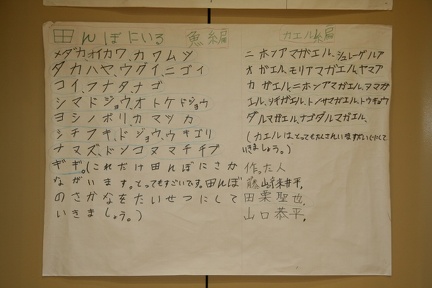 田んぼにいる 魚編
メダカ、オイカワ、カワムツ
タカハヤ、ウグイ、ニゴイ
コイ、フナ、タナゴ
シマドジョウ、オトケドジョウ
ヨシノボリ、カマツカ
シチフキ、ドジョウ、ウキゴリ
ナマズ、ドンコ、ヌマチチブ
ギギ。(これだけ田んぼにさか
ながいます。とってもすごいです。田んぼ
のさかなをたいせつにして
いきましょう。)
カエル編
ニホンアマガエル、シュレーゲルア
オガエル、モリアオガエル、ヤマア
カガエル、ニホンアカガエル、ヌマガ
エル、ツチガエル、トノサマガエル、トウキョウ
ダルマガエル、ナゴヤダルマガエル、
(カエルは、とってもたくさんいます。たいせつにして
いきましょう。)
作った人
田栗聖也、
山口恭平、